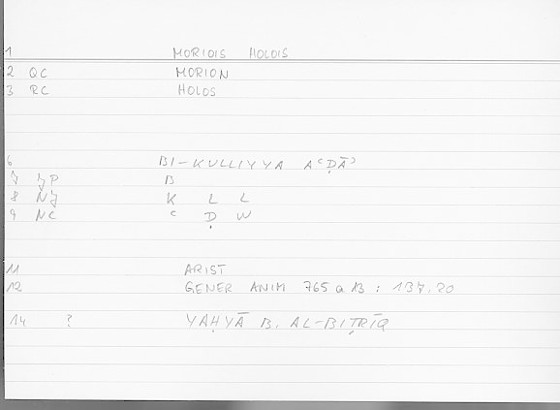 1 MORIOIS HOLOIS
2 QC MORION
3 RC HOLOS
6 BI-KULLIYYA AʿḌĀʾ
7 JP B
8 NJ K L L
9 NC ʿ Ḍ W
11 ARIST
12 GENER ANIM 765 a 13 : 137.20
14 ? YAḤYĀ B. AL-BIṬRĪQ